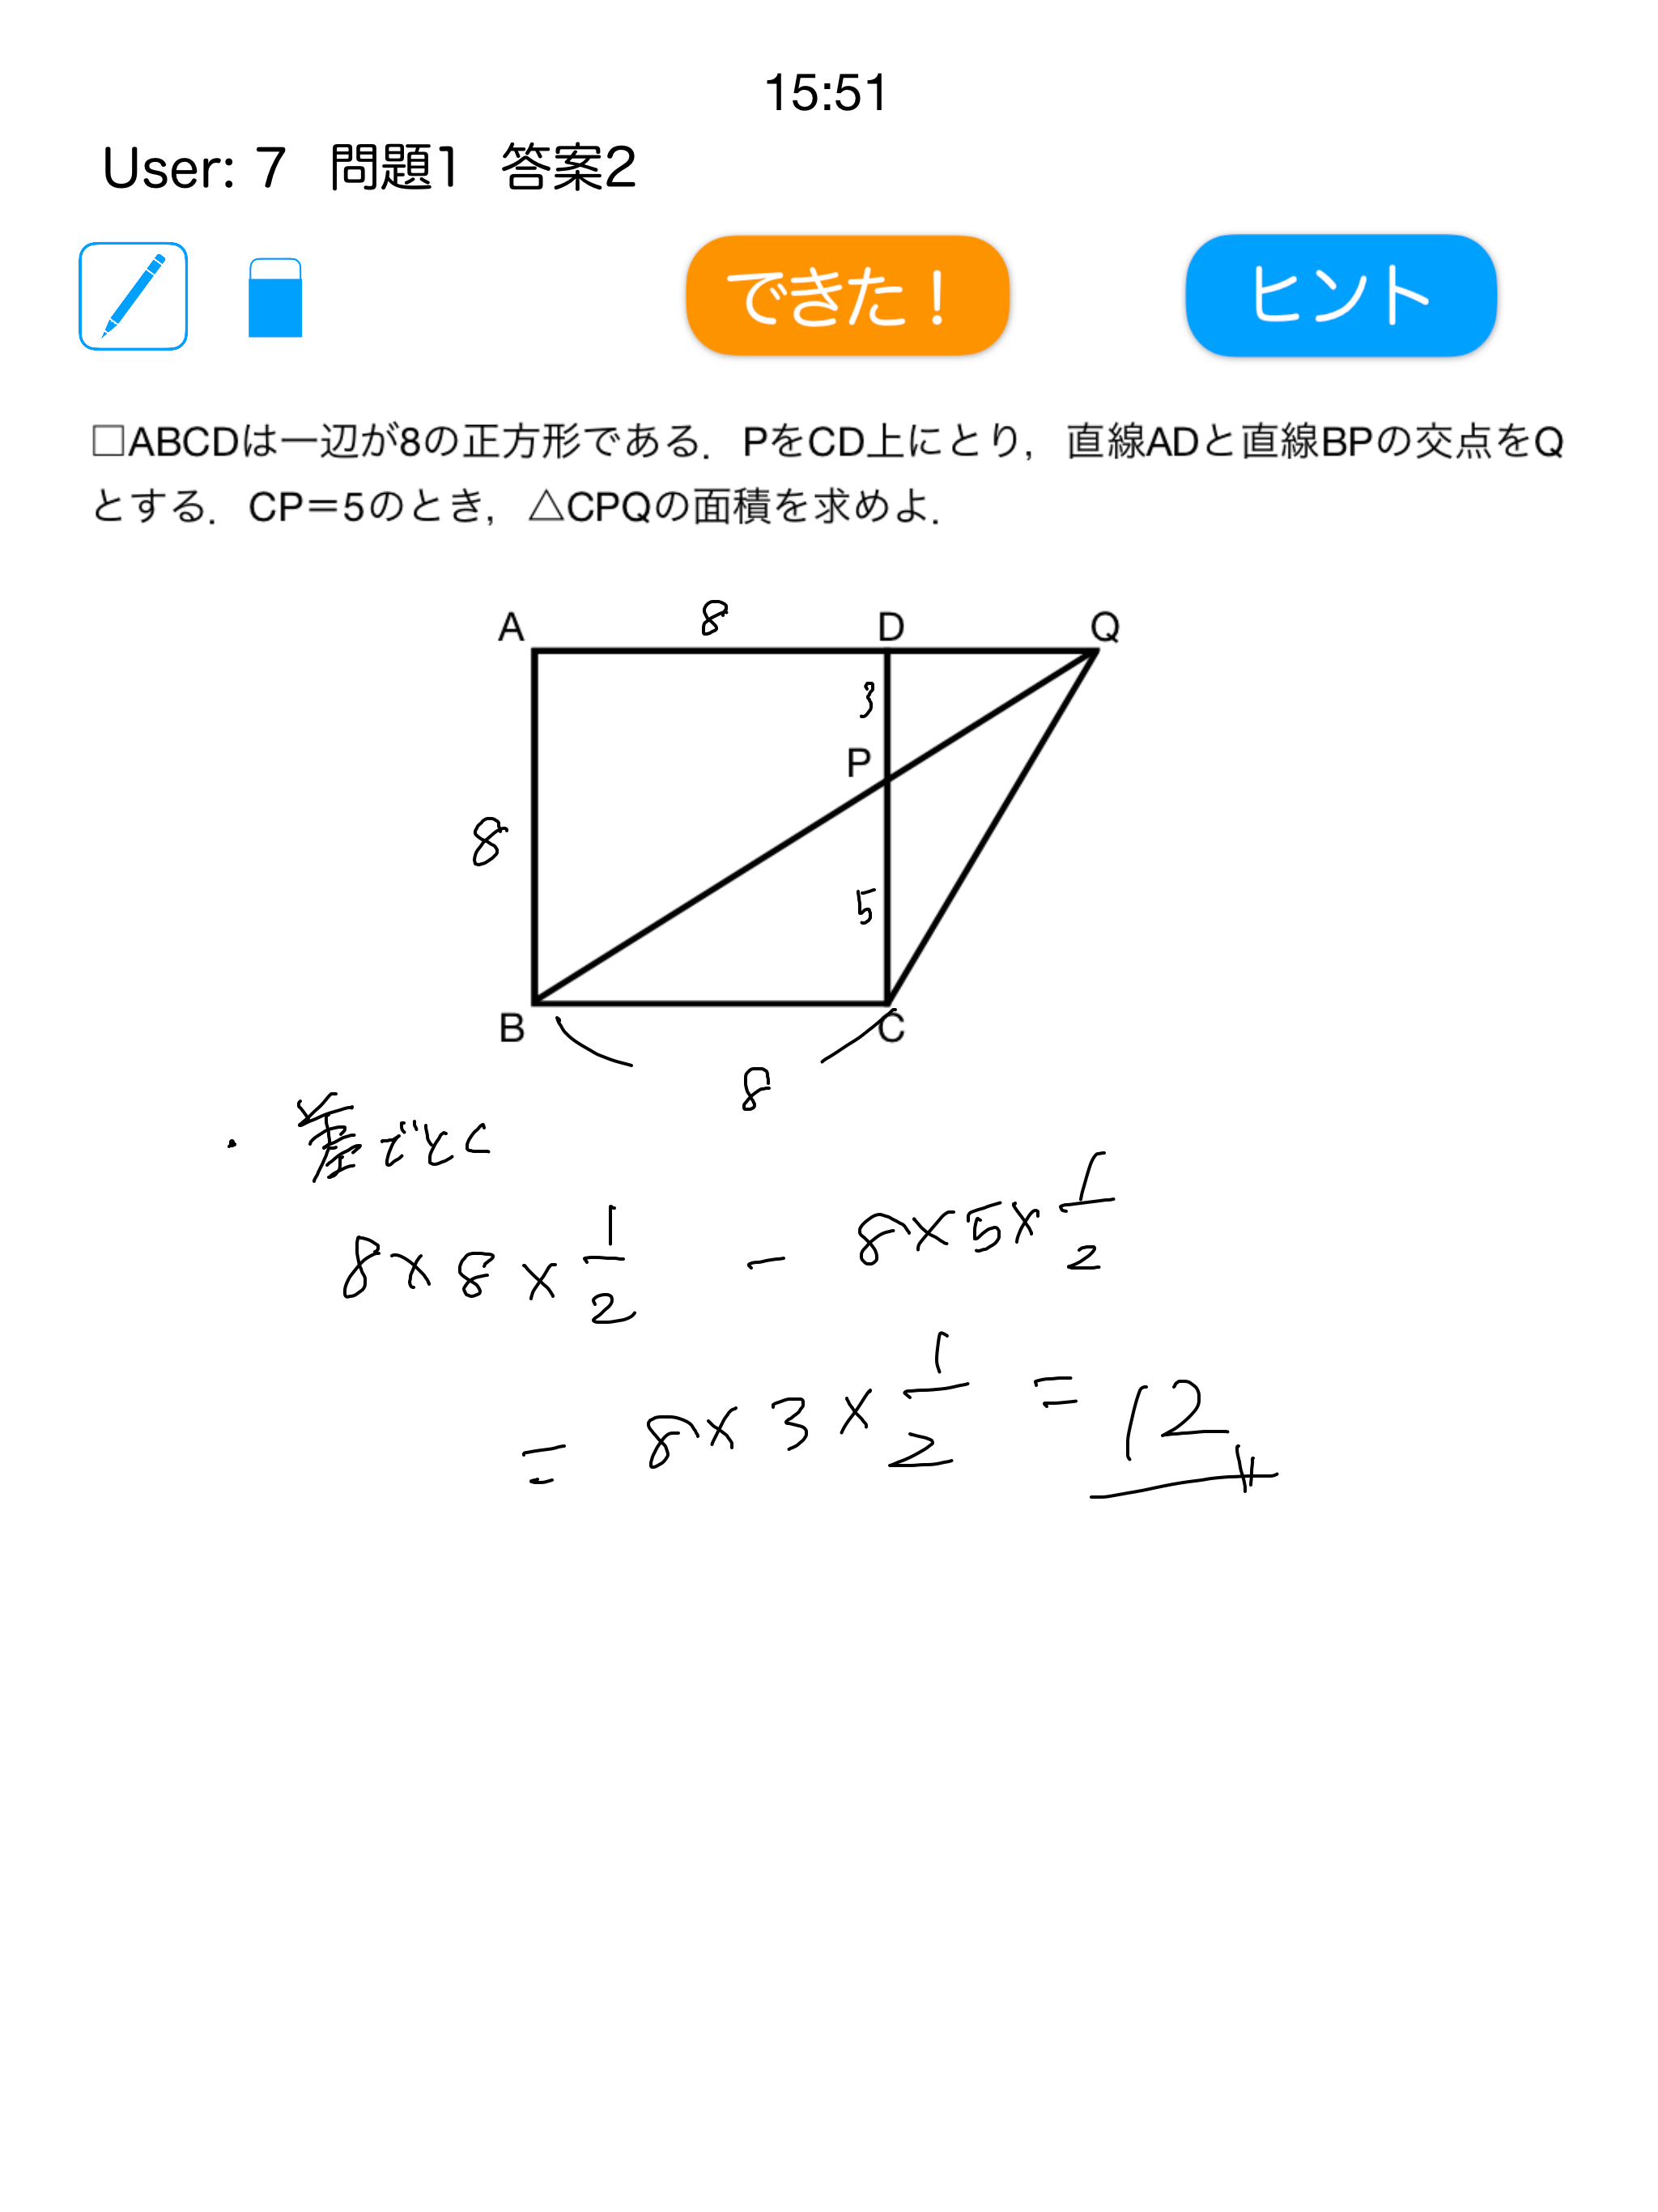 15:51
User: 7 問題1 答案2
できた！ ヒント
□ABCDは一辺が8の正方形である．PをCD上にとり，直線ADと直線BPの交点をQ
とする．CP＝5のとき，△CPQの面積を求めよ．
A 8 D Q
3
P
8
5
B C
8
・差でとく
8×8×1/2 - 8×5×1/2
= 8×3×1/2 = 12